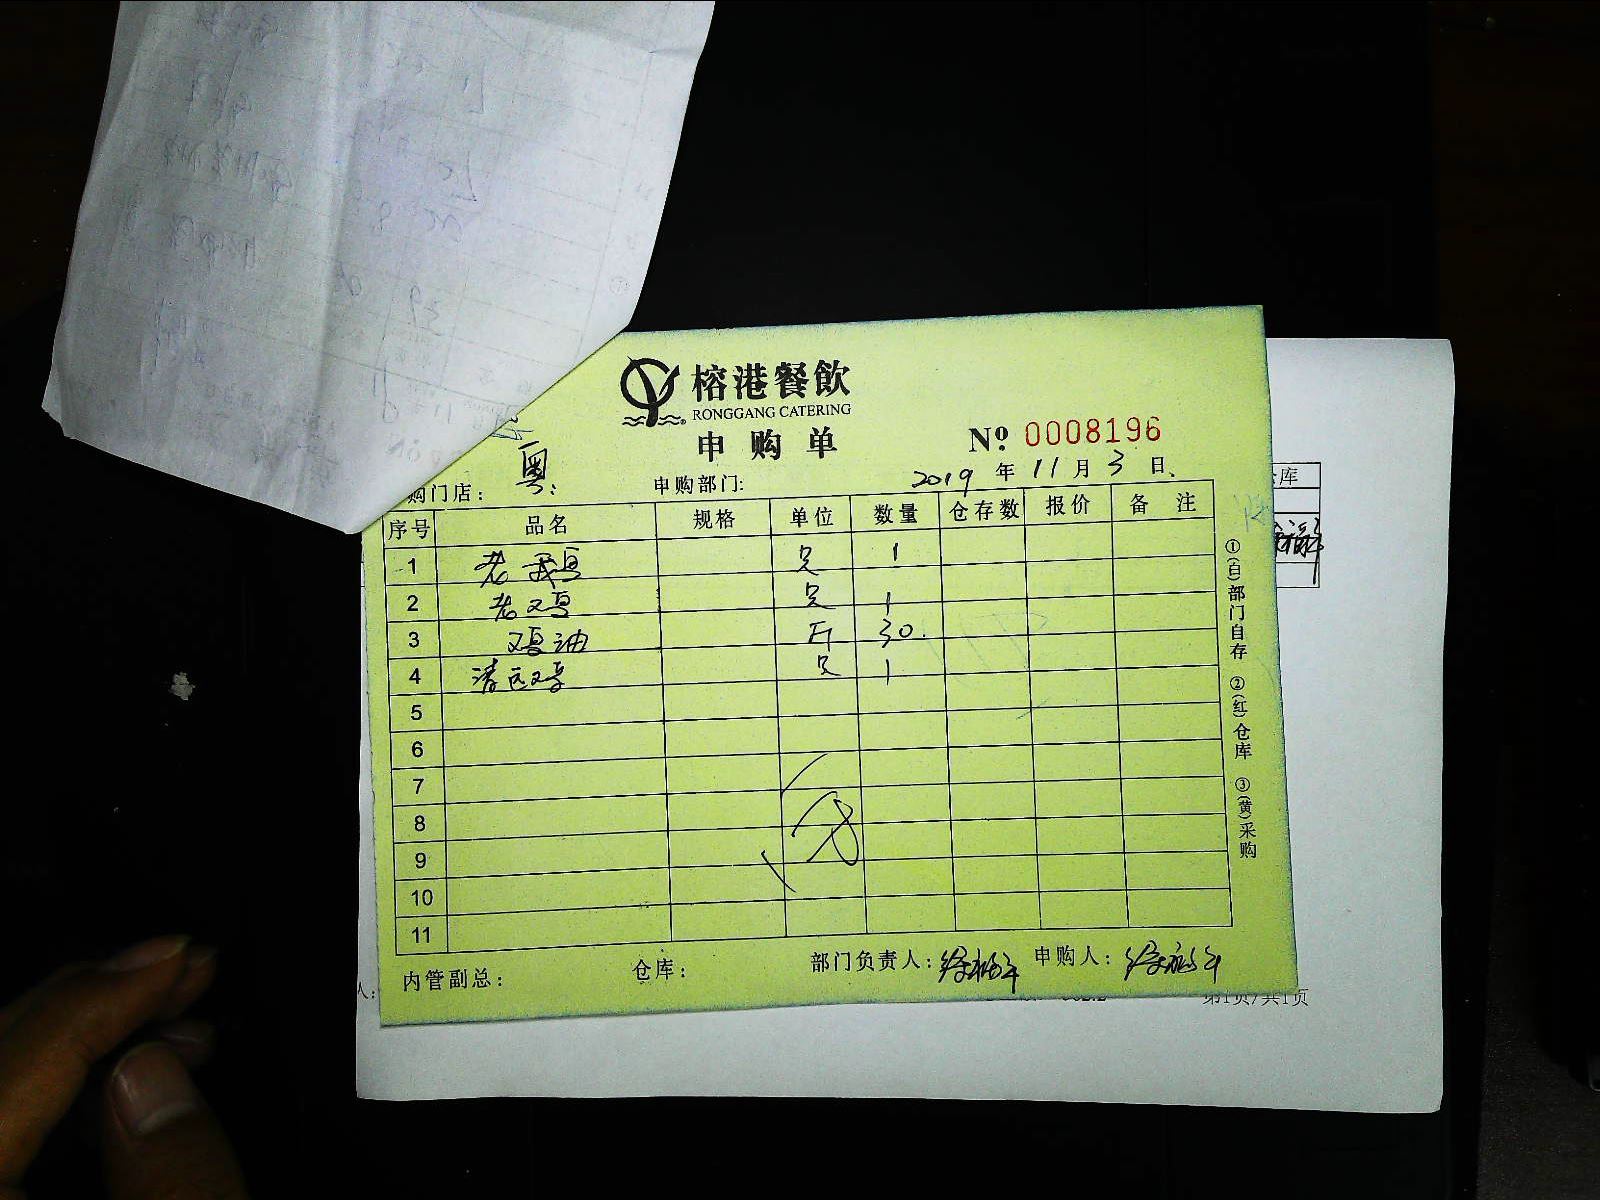 榕港餐飲
RONGGANG CATERING
申购单
Nº 0008196
购门店： 粤： 申购部门： 2019 年 11 月 3 日
序号 品名 规格 单位 数量 仓存数 报价 备注
1 老鹅 只 1
2 老鸡 只 1
3 鸡油 斤 30.
4 清远鸡 只 1
5
6
7
8
9
10
11
内管副总： 仓库： 部门负责人： 申购人：
①(白)部门自存 ②(红)仓库 ③(黄)采购
库
人：
第1页/共1页